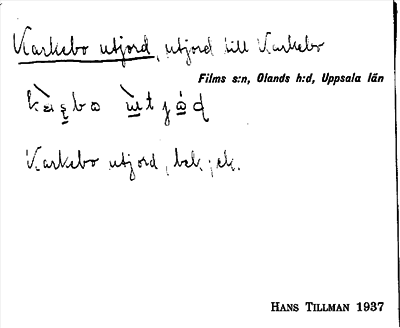 Karkebo utjord, utjord till Karkebo
Films s:n, Olands h:d, Uppsala län
Karkebo utjord, bek; ek.
HANS TILLMAN 1937